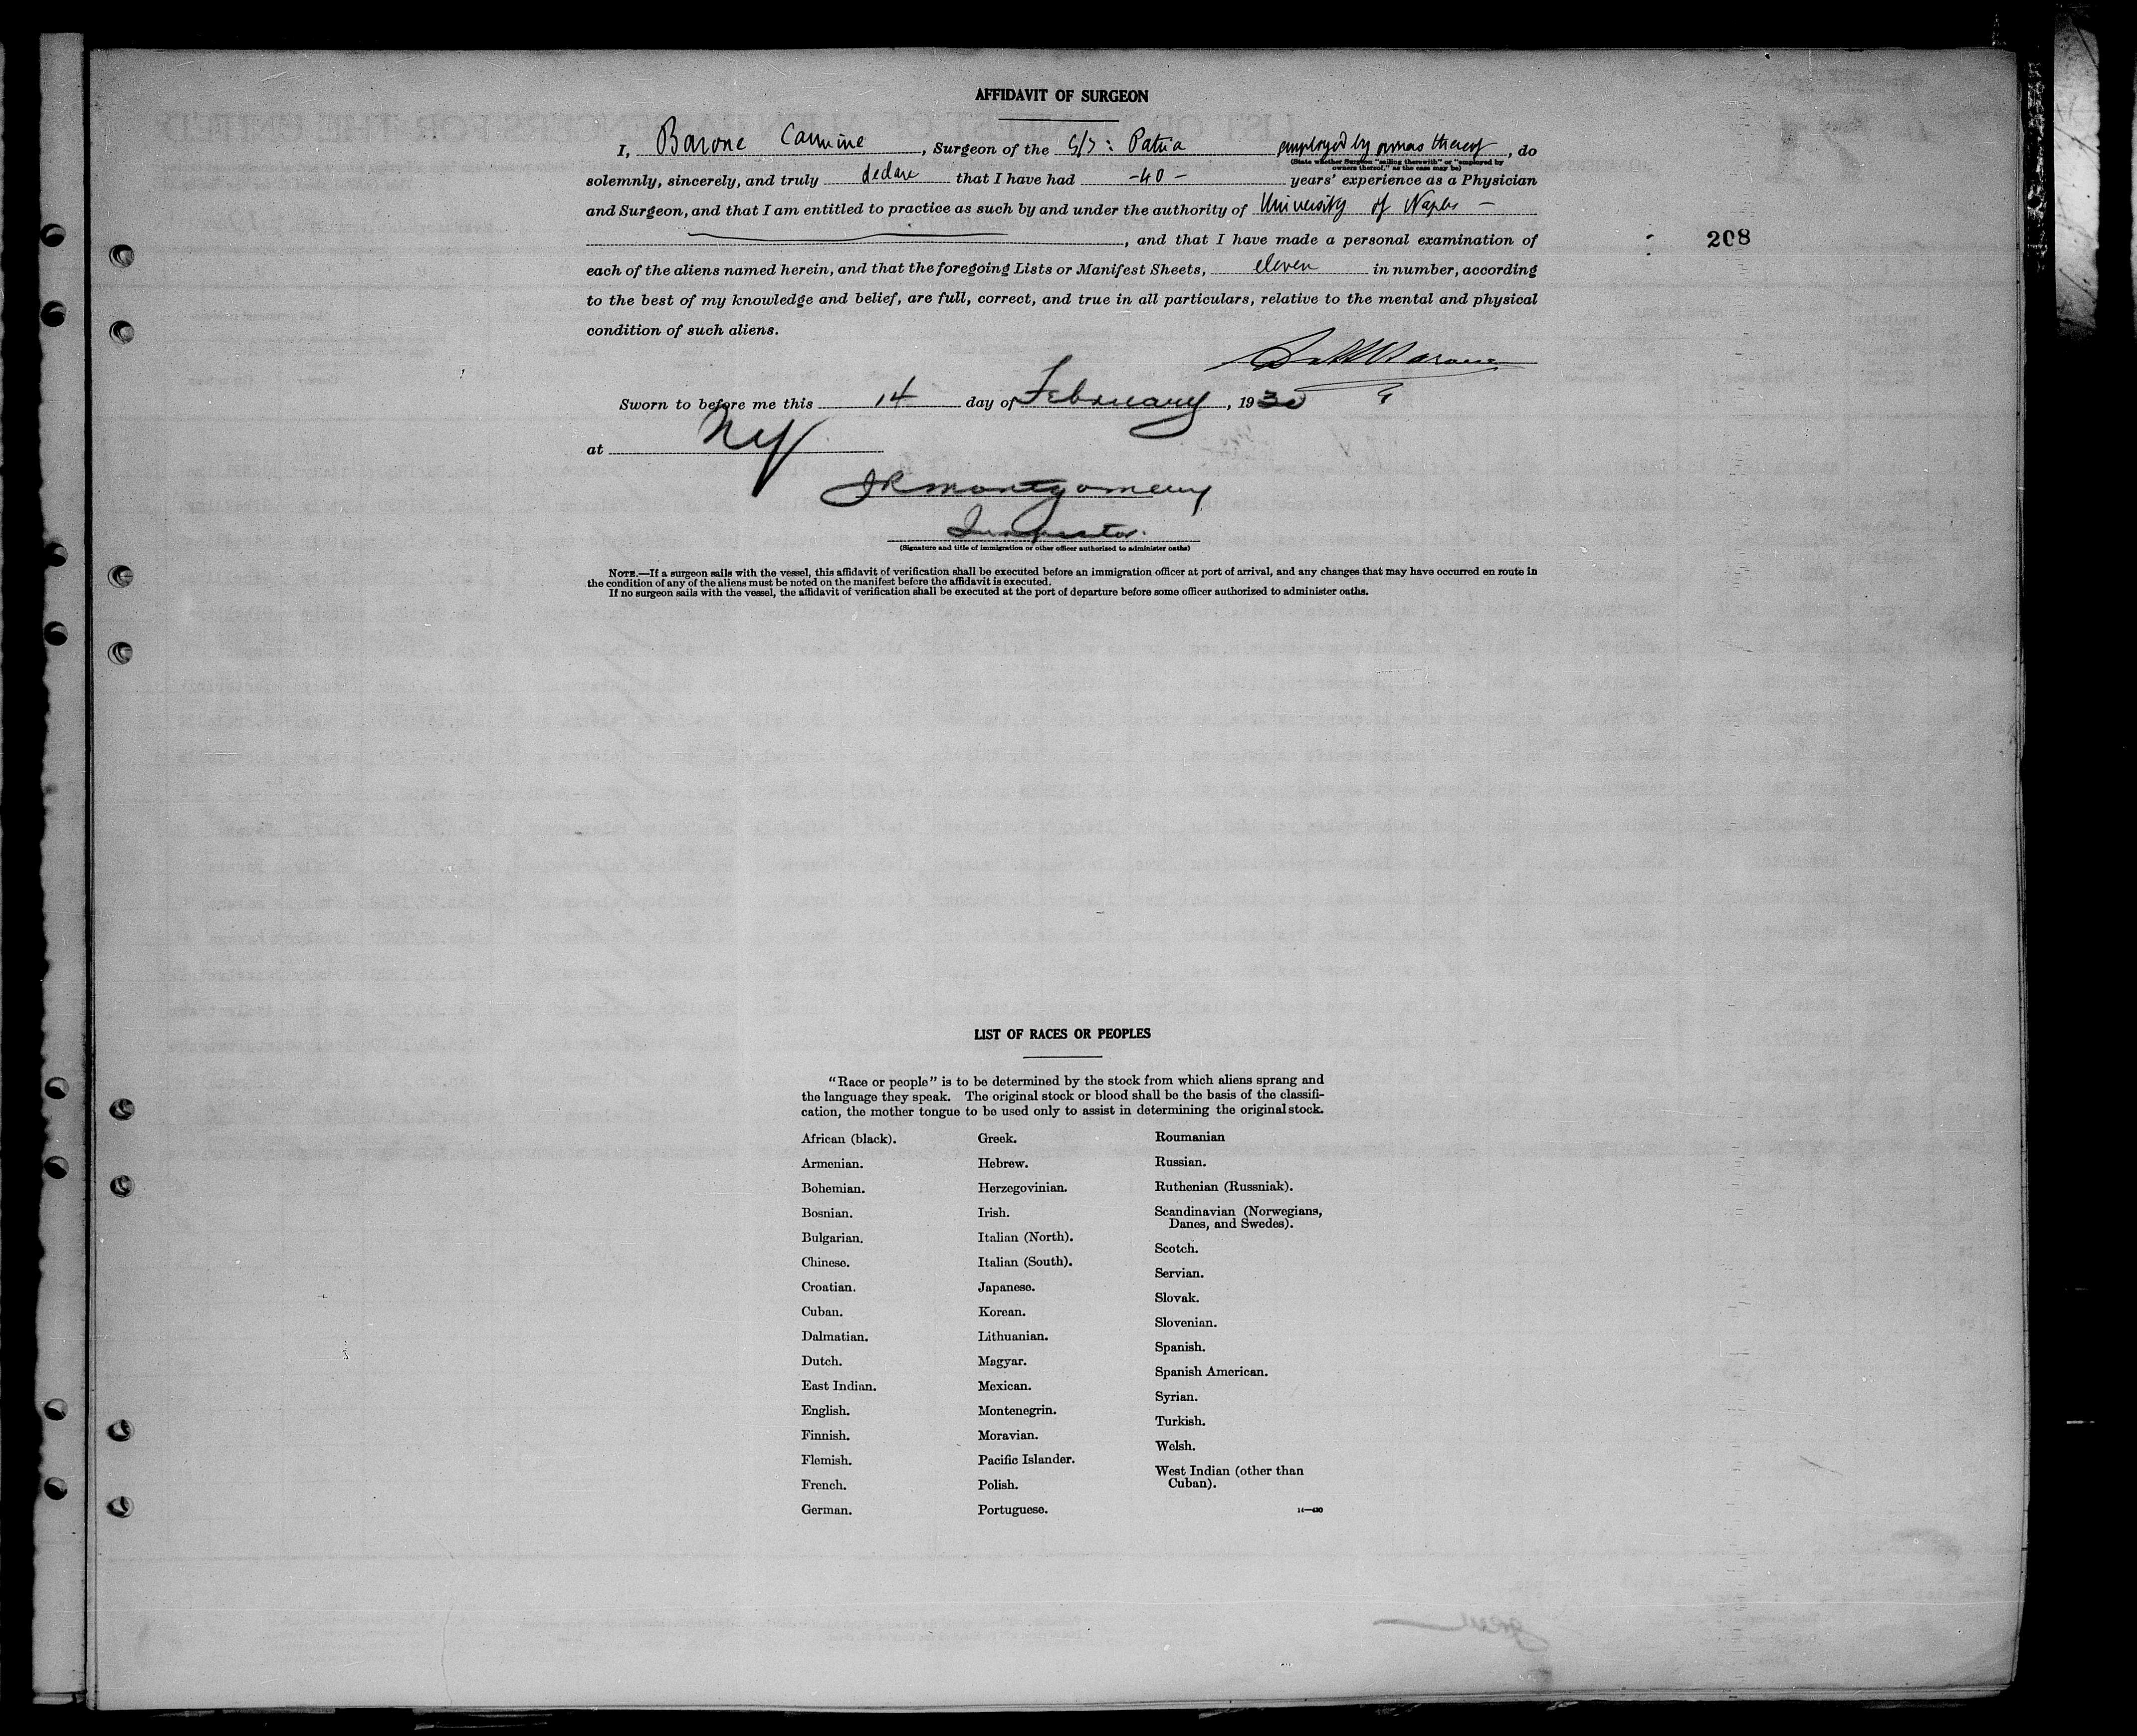 AFFIDAVIT OF SURGEON
I, Barone Carmine, Surgeon of the S/S: Patria employed by owners thereof, do
(State whether Surgeon "sailing therewith" or "employed by
owners thereof," as the case may be)
solemnly, sincerely, and truly declare that I have had -40- years' experience as a Physician
and Surgeon, and that I am entitled to practice as such by and under the authority of University of Naples -
, and that I have made a personal examination of
208
each of the aliens named herein, and that the foregoing Lists or Manifest Sheets, eleven in number, according
to the best of my knowledge and belief, are full, correct, and true in all particulars, relative to the mental and physical
condition of such aliens.
Barone
Sworn to before me this 14 day of February, 1930
at NY
JR Montgomery
Inspector.
(Signature and title of immigration or other officer authorized to administer oaths)
NOTE.—If a surgeon sails with the vessel, this affidavit of verification shall be executed before an immigration officer at port of arrival, and any changes that may have occurred en route in
the condition of any of the aliens must be noted on the manifest before the affidavit is executed.
If no surgeon sails with the vessel, the affidavit of verification shall be executed at the port of departure before some officer authorized to administer oaths.
LIST OF RACES OR PEOPLES
"Race or people" is to be determined by the stock from which aliens sprang and
the language they speak. The original stock or blood shall be the basis of the classifi-
cation, the mother tongue to be used only to assist in determining the original stock.
African (black).
Armenian.
Bohemian.
Bosnian.
Bulgarian.
Chinese.
Croatian.
Cuban.
Dalmatian.
Dutch.
East Indian.
English.
Finnish.
Flemish.
French.
German.
Greek.
Hebrew.
Herzegovinian.
Irish.
Italian (North).
Italian (South).
Japanese.
Korean.
Lithuanian.
Magyar.
Mexican.
Montenegrin.
Moravian.
Pacific Islander.
Polish.
Portuguese.
Roumanian
Russian.
Ruthenian (Russniak).
Scandinavian (Norwegians,
Danes, and Swedes).
Scotch.
Servian.
Slovak.
Slovenian.
Spanish.
Spanish American.
Syrian.
Turkish.
Welsh.
West Indian (other than
Cuban).